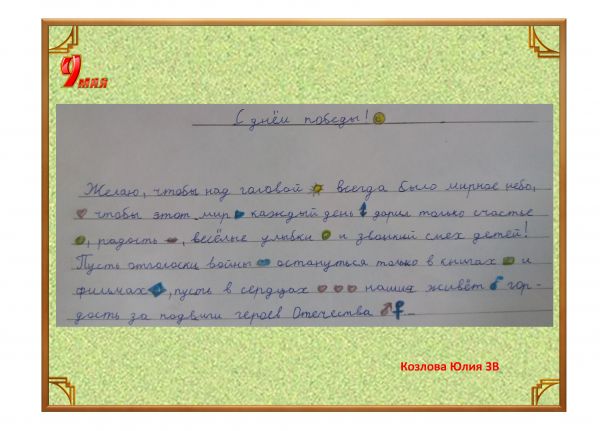 9 мая
С днём победы!
Желаю, чтобы над головой всегда было мирное небо,
чтобы этот мир каждый день дарил только счастье
, радость , весёлые улыбки и звонкий смех детей!
Пусть отголоски войны останутся только в книгах и
фильмах , пусть в сердцах наших живёт гор-
дость за подвиги героев Отечества ...
Козлова Юлия 3В